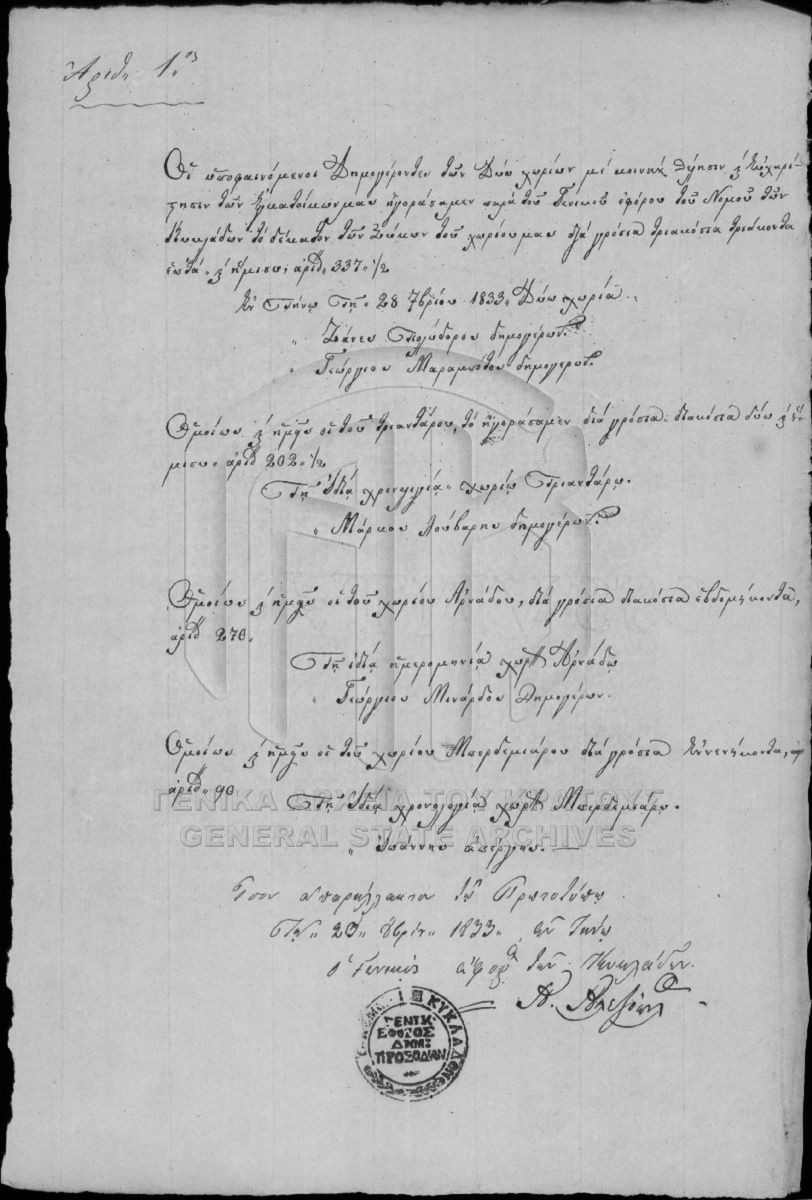 Αριθ. 1.ος
Οἱ ὑποφαινόμενοι Δημογέροντες τῶν Δύω χωρίων μὲ κοινὴν θέλησιν κ εὐχαρί-
στησιν τῶν ἐγκατοίκων μας ἠγοράσαμεν παρὰ τοῦ Γενικοῦ ἐφόρου τοῦ Νομοῦ τῶν
Κυκλάδων τὸ δέκατον τῶν σύκων τοῦ χωρίου μας διὰ γρόσια τριακόσια τριάκοντα
ἑπτὰ κ ἥμισυ; ἀριθ 337 ½
Ἐν Τήνῳ τῇ 28 7βρίου 1833 Δύω χωρία
Ζάνες Πολύδορος δημογέρων.
Γεώργιος Μαραμπότος δημογέρων.
Ὁμοίως κ ἡμεῖς οἱ τοῦ τριαντάρου, τὸ ἠγοράσαμεν διὰ γρόσια διακόσια δύω κ ἥ-
μισυ ἀριθ 202 ½
Τῇ ἰδίᾳ χρονολογίᾳ χωρίῳ Τριαντάρῳ.
Μάρκος Λούβαρης δημογέρων
Ὁμοίως κ ἡμεῖς οἱ τοῦ χωρίου Ἀρνάδου, διὰ γρόσια διακόσια ἑβδομήκοντα,
ἀριθ 270.
Τῇ ἰδίᾳ ἡμερομηνίᾳ χωρ Ἀρνάδῳ
Γεώργιος Μινάρδος Δημογέρων.
Ὁμοίως κ ἡμεῖς οἱ τοῦ χωρίου Μπερδεμιάρου διὰ γρόσια ἐννενήκοντα,
ἀριθ 90
ΓΕΝΙΚΑ ΑΡΧΕΙΑ ΤΟΥ ΚΡΑΤΟΥΣ
Τῇ ἰδίᾳ χρονολογίᾳ χωρ Μπερδεμιάρῳ.
GENERAL STATE ARCHIVES
Ἰωάννης ἀπέργης.
Ἴσον ἀπαράλλακτον τῷ Πρωτοτύπῳ
Τῇ 29 8βρίου 1833 ἐν Τήνῳ
ὁ Γενικὸς ἔφορος τῶν Κυκλάδων.
ΚΥΚΛΑΔΩΝ
ΓΕΝΙΚ
ΕΦΟΡΟΣ
ΔΗΜ
ΠΡΟΣΟΔΩΝ